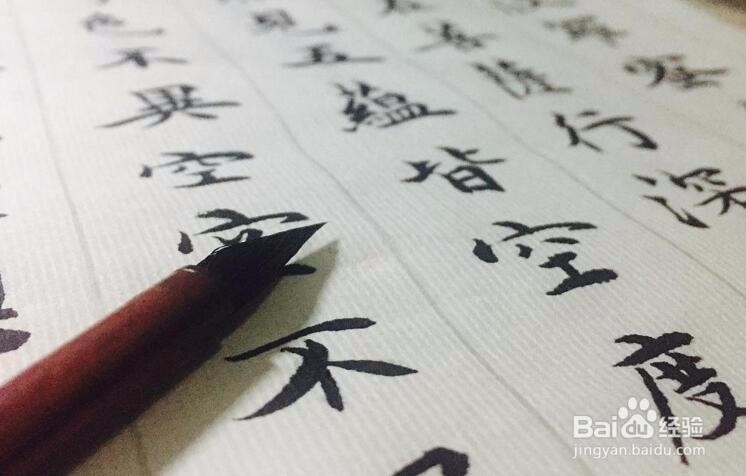 在菩薩行深
見五蘊皆空度
色不異空空不
Baidu经验
jingyan.baidu.com